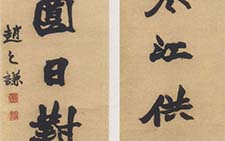 江供
園日對
趙之謙